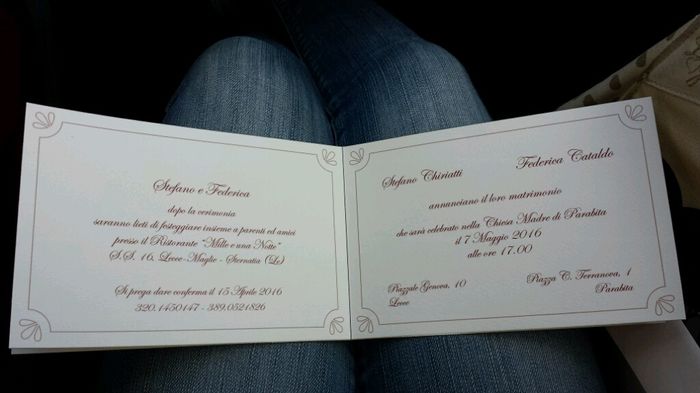 Stefano e Federica
dopo la cerimonia
saranno lieti di festeggiare insieme a parenti ed amici
presso il Ristorante "Mille e una Notte"
S.S. 16, Lecce-Maglie - Sternatia (Le)
Si prega dare conferma il 15 Aprile 2016
320.1450147 - 389.0521826
Stefano Chiriatti
Federica Cataldo
annunciano il loro matrimonio
che sarà celebrato nella Chiesa Madre di Parabita
il 7 Maggio 2016
alle ore 17.00
Piazzale Genova, 10
Lecce
Piazza C. Terranova, 1
Parabita